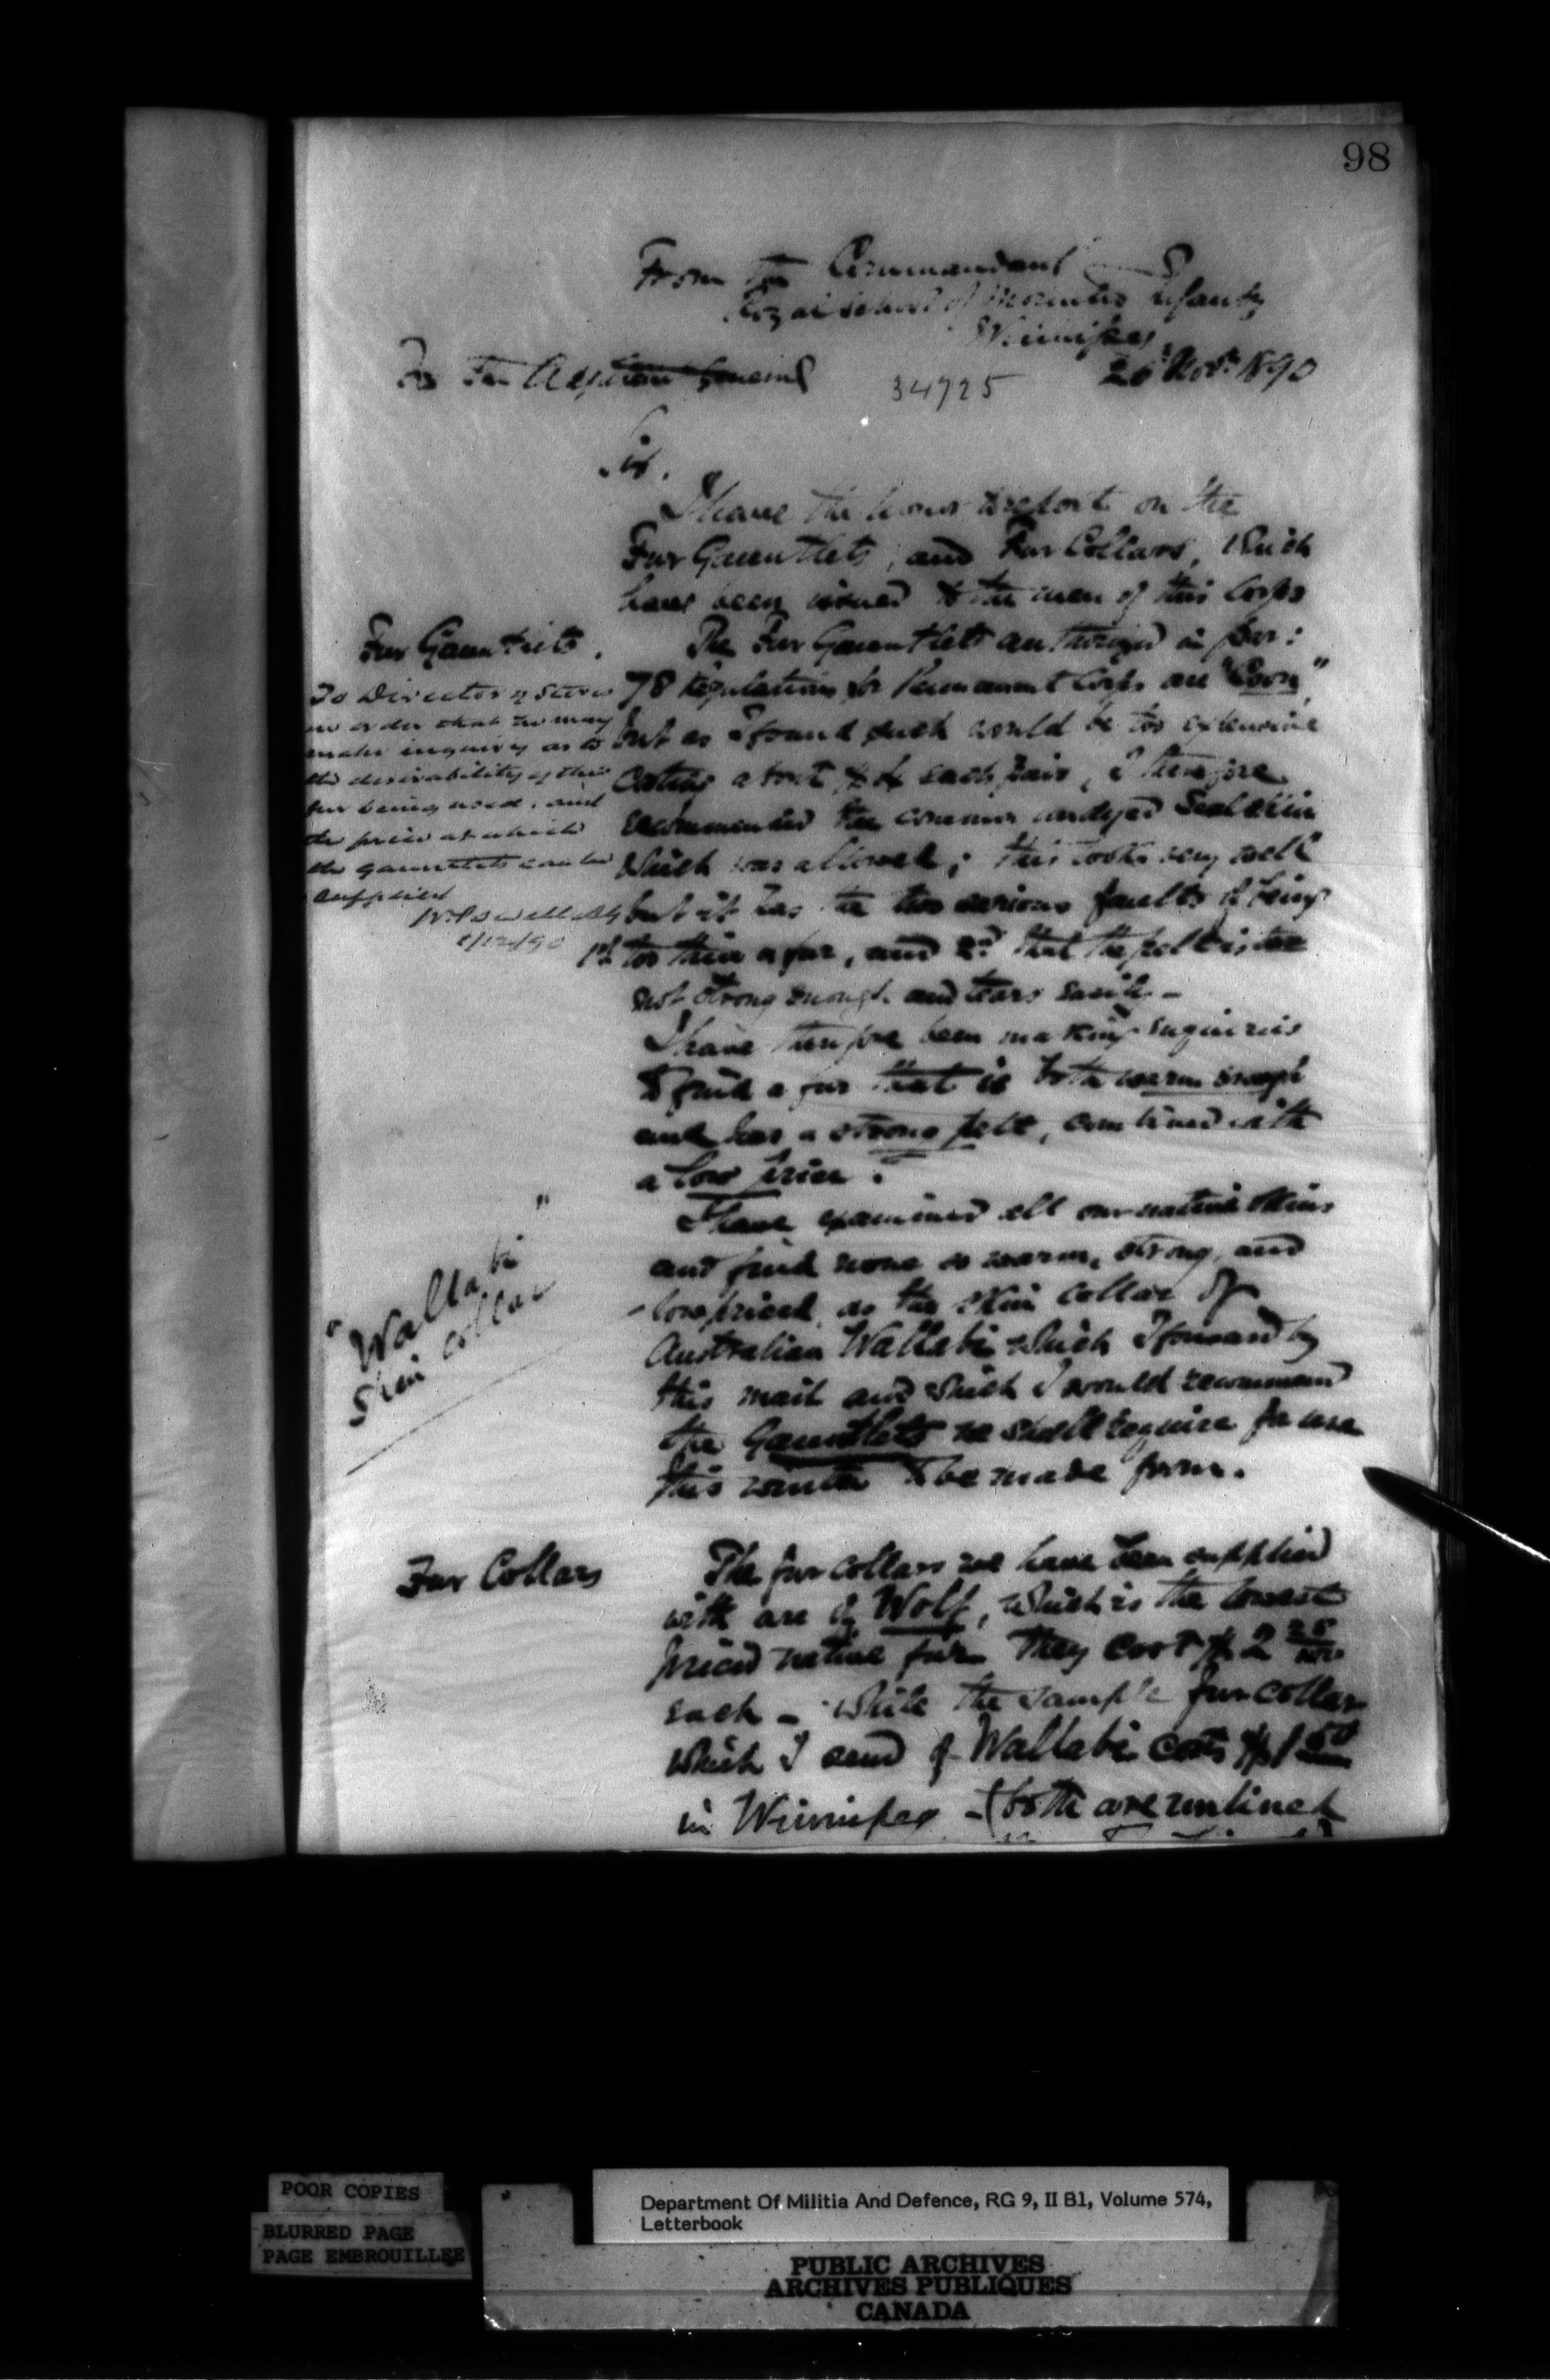 98
From the Commandant
Royal School of Mounted Infantry
Winnipeg
26th Novr 1890
To The Adjutant General
34725
Sir.
I have the honor to report on the
Fur Gauntlets, and Fur Collars, which
have been issued to the men of this Corps
Fur Gauntlets.
The Fur Gauntlets authorized in par:
78 Regulations for Permanent Corps are "Coon"
but as I found such would be too expensive
costing about $4 each pair, I therefore
recommended the common undyed Sealskin
which was allowed; this looks very well
but it has the two serious faults of being
1st too thin a fur, and 2nd that the pelt is
not strong enough and tears easily -
To Director of Stores
in order that he may
make inquiry as to
the desirability of this
fur being used, and
the price at which
the gauntlets can be
supplied
W Powell AG
1/12/90
I have therefore been making enquiries
to find a fur that is both warm enough
and has a strong pelt, combined with
a low price.
I have examined all our native skins
and find none so warm, strong, and
low priced, as the skin collar of
Australian Wallabi which I forward by
this mail and which I would recommend
the Gauntlets we shall require for use
this winter to be made from.
"Wallabi"
Skin collar
Fur Collars
The fur collars we have been supplied
with are of Wolf, which is the lowest
priced native fur. They cost $2 25/100
each - while the sample fur collar
which I send of Wallabi costs $1 50
in Winnipeg - (both are unlined
POOR COPIES
BLURRED PAGE
PAGE EMBROUILLEE
Department Of Militia And Defence, RG 9, II B1, Volume 574,
Letterbook
PUBLIC ARCHIVES
ARCHIVES PUBLIQUES
CANADA